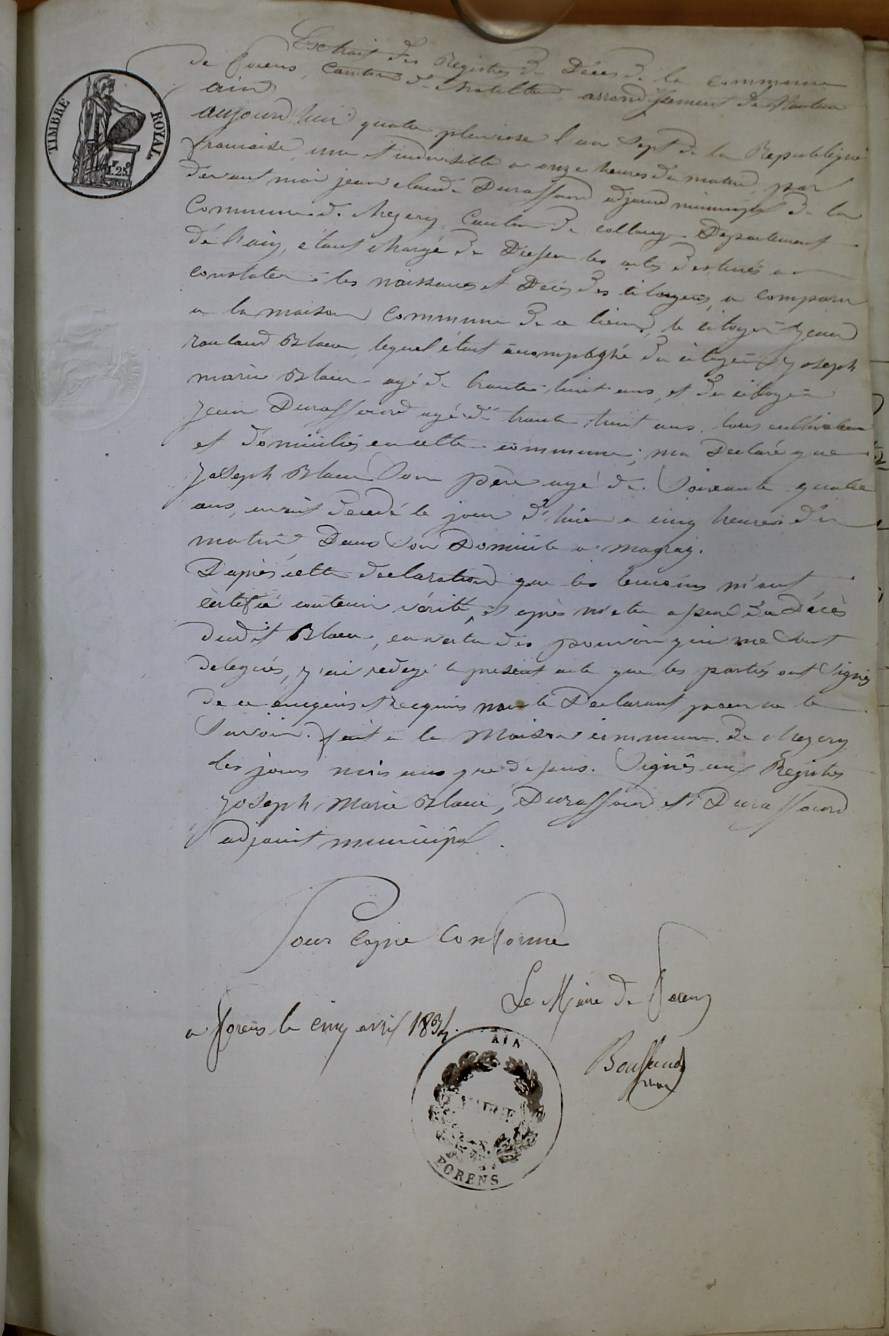 TIMBRE ROYAL
1F.25
Extrait des Registres de Décès de la commune
de forens, Canton de Chatillon, arrondissement de Nantua
ain
aujourd'hui quatre pluviose l'an sept de la Republique
francaise, une et indivisible a onze heures du matin, par
devant moi jean claude Duraffourd adjoint municipal de la
Commune de Chezery Canton de Collonge Departement
de l'ain, étant chargé de Dresser les actes destinés a
constater les naissances et Décès des citoyens, a comparu
a la maison Commune de ce lieu, le citoyen jean
rouland Blanc, lequel était accompagné du citoyen Joseph
marie Blanc agé de trente huit ans, et du citoyen
Jean Duraffourd agé de trente huit ans, tous cultivateurs
et domiciliés en cette commune; ma Declaré que
Joseph Blanc Son père agé de Soixante quatre
ans, etait decedé le jour d'hier a cinq heures du
matin Dans Son Domicile a
D'après cette declaration que les temoins m'ont
certifié contenir vérité, et après m'etre assuré du décès
dudit Blanc, en vertu des pouvoirs qui me Sont
delegués, j'ai redigé le présent acte que les parties ont Signés
de ce enquis et requis non le Declarant pour ne le
Savoir. fait a la Maison commune de Chezery
les jours mois ans que dessus. Signés aux Registres
Joseph Marie Blanc, Duraffourd et Duraffourd
adjoint municipal.
Pour Copie Conforme
Le Maire de forens
a forens le cinq avril 1834.
AIN
MAIRIE
FORENS